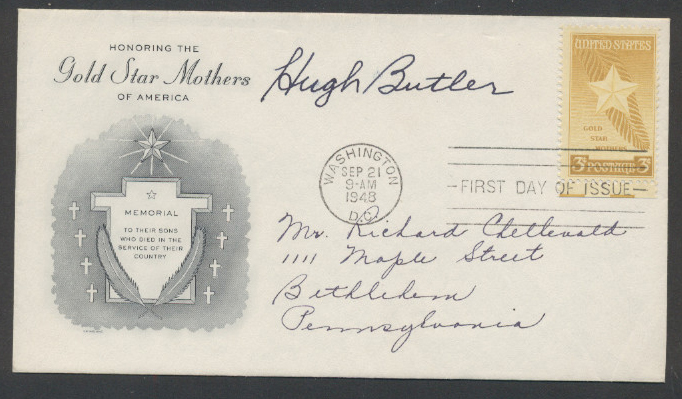 HONORING THE
Gold Star Mothers
OF AMERICA
Hugh Butler
UNITED STATES
GOLD
STAR
MOTHERS
3¢ POSTAGE 3¢
WASHINGTON
SEP 21
9-AM
1948
D.C.
FIRST DAY OF ISSUE
MEMORIAL
TO THEIR SONS
WHO DIED IN THE
SERVICE OF THEIR
COUNTRY
Mr. Richard Chellevold
1111 Maple Street
Bethlehem
Pennsylvania